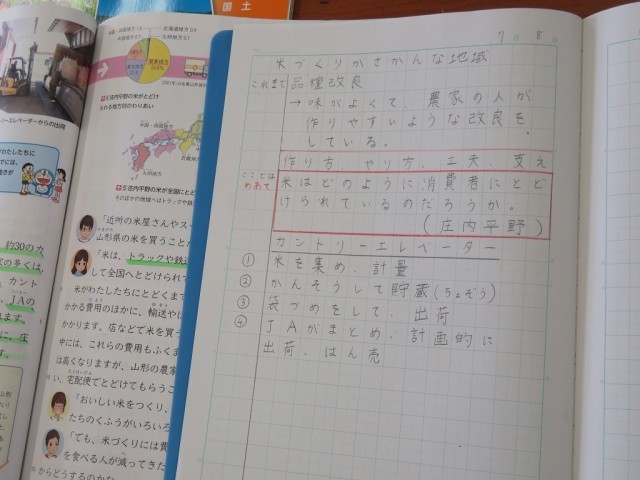 国土
7月 8日
米づくりがさかんな地域
これまで 品種改良
→味がよくて、農家の人が
作りやすいような改良を
している。
作り方 やり方、工夫、支え
ことば
めあて
米はどのように消費者にとど
けられているのだろうか。
(庄内平野)
カントリーエレベーター
① 米を集め、計量
② かんそうして貯蔵(ちょぞう)
③ 袋づめをして、出荷
④ JAがまとめ、計画的に
出荷、はん売
北海道地方
九州地方
関東地方
庄内平野の米がとどけ
られる地方別のわりあい
中国・四国地方
九州地方
近畿地方
庄内平野の米が全国にとど
エレベーターからの出荷
「近所の米屋さんやス
山形県の米を買うことが
「米は、トラックや鉄道
して全国へとどけられて
米がわたしたちにとどくまで
かかる費用のほかに、輸送や
かかります。店などで米を買う
中には、これらの費用もふくま
は高くなりますが、山形の農家
い、宅配便でとどけてもらうこ
「おいしい米をつくり、
たちのくふうがいろいろ
「でも、米づくりには費
を食べる人が減ってきた
からどうするのかな
約30のカ
の多くは、
カント
JAの
います。
に、庄